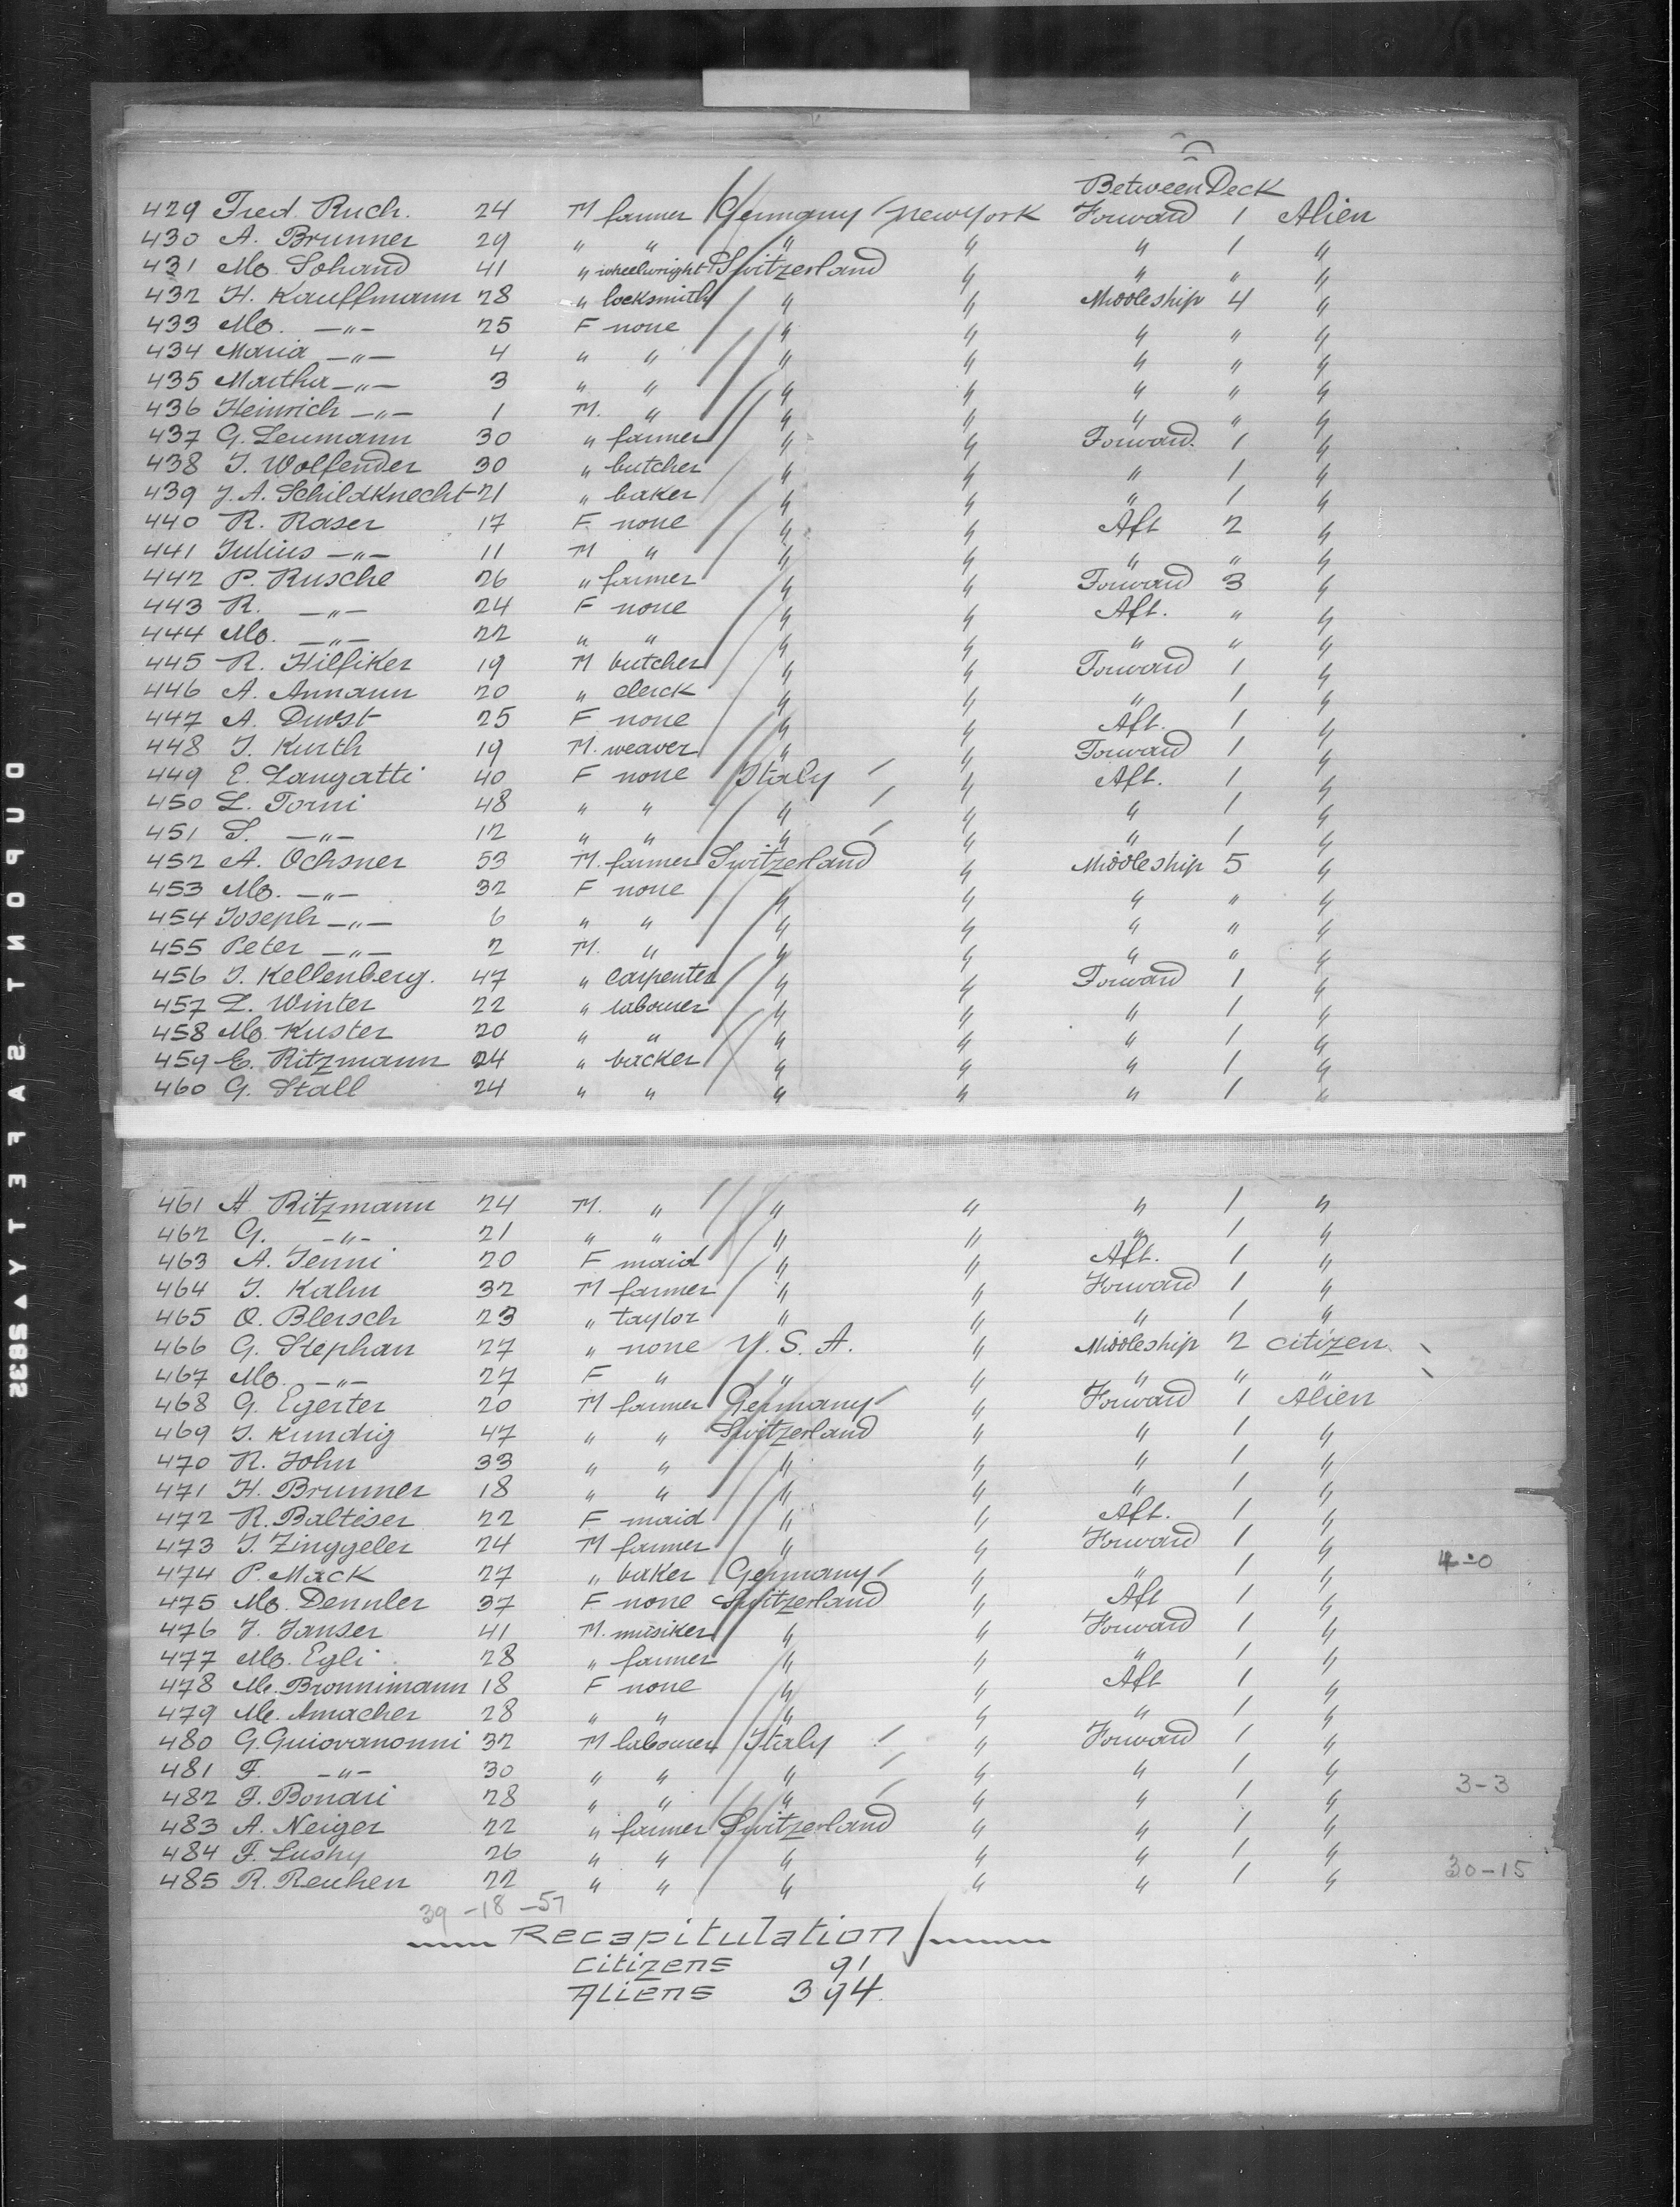 Between Deck
429 Fred. Ruch. 24 M farmer Germany New York Forward 1 Alien
430 A. Brunner 29 " " " " " 1 "
431 Mo Sohand 41 " wheelwright Switzerland " " " "
432 H. Kauffmann 28 " locksmith " " Middleship 4 "
433 Mo. —"— 25 F none " " " " "
434 Maria —"— 4 " " " " " " "
435 Martha —"— 3 " " " " " " "
436 Heinrich —"— 1 M. " " " " " "
437 G. Leumann 30 " farmer " " Forward. 1 "
438 J. Wolfender 30 " butcher " " " 1 "
439 J. A. Schildknecht 21 " baker " " " 1 "
440 R. Raser 17 F none " " Aft 2 "
441 Julius —"— 11 M " " " " " "
442 P. Rusche 26 " farmer " " Forward 3 "
443 R. —"— 24 F none " " Aft. " "
444 Mo. —"— 22 " " " " " " "
445 R. Hilfiker 19 M butcher " " Forward 1 "
446 A. Annann 20 " clerck " " " 1 "
447 A. Durst 25 F none " " Aft. 1 "
448 J. Kurth 19 M. weaver " " Forward 1 "
449 E. Langatti 40 F none Italy " Aft. 1 "
450 L. Torni 48 " " " " " 1 "
451 S. —"— 12 " " " " " 1 "
452 A. Ochsner 53 M. farmer Switzerland " Middleship 5 "
453 Mo. —"— 32 F none " " " " "
454 Joseph —"— 6 " " " " " " "
455 Peter —"— 2 M. " " " " " "
456 J. Kellenberg. 47 " carpenter " " Forward 1 "
457 L. Winter 22 " labourer " " " 1 "
458 Mo Kuster 20 " " " " " 1 "
459 E. Ritzmann 24 " backer " " " 1 "
460 G. Stall 24 " " " " " 1 "
461 A Ritzmann 24 M. " " " " 1 "
462 G. —"— 21 " " " " " 1 "
463 A. Jenni 20 F maid " " Aft. 1 "
464 J. Kahn 32 M farmer " " Forward 1 "
465 O. Blersch 23 " taylor " " " 1 "
466 G. Stephan 27 " none U. S. A. " Middleship 2 citizen
467 Mo. —"— 27 F " " " " " "
468 G. Egerter 20 M farmer Germany " Forward 1 Alien
469 J. Kundig 47 " " Switzerland " " 1 "
470 R. John 33 " " " " " 1 "
471 H. Brunner 18 " " " " " 1 "
472 R. Baltiser 22 F maid " " Aft. 1 "
473 J. Zinggeler 24 M farmer " " Forward 1 "
474 P. Mack 27 " baker Germany " " 1 " 4-0
475 Mo. Dennler 37 F none Switzerland " Aft 1 "
476 J. Janser 41 M. musiker " " Forward 1 "
477 Mo. Egli 28 " farmer " " " 1 "
478 M. Bronnimann 18 F none " " Aft 1 "
479 M. Amacher 28 " " " " " 1 "
480 G. Guiovanonni 32 M labourer Italy " Forward 1 "
481 F. —"— 30 " " " " " 1 "
482 F. Bondri 28 " " " " " 1 " 3-3
483 A. Neiger 22 " farmer Switzerland " " 1 "
484 F. Lushy 26 " " " " " 1 "
485 R. Reuhen 22 " " " " " 1 " 30-15
39-18-57
Recapitulation
Citizens 91
Aliens 394.
DUPONT SAFETY ▲ S83S